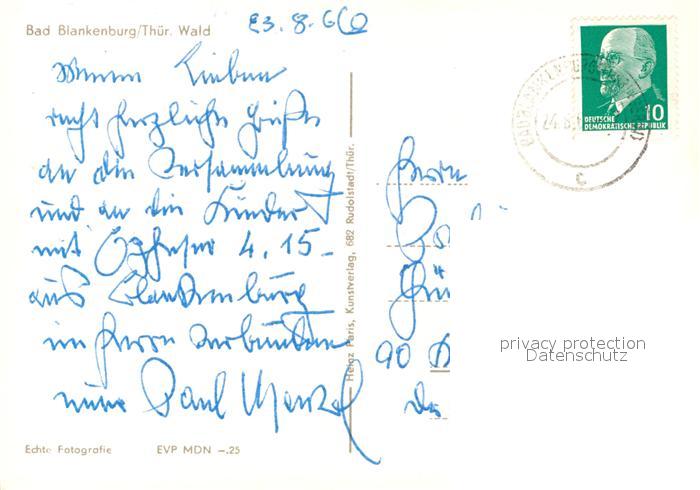 Bad Blankenburg/Thür. Wald
23. 8. 66
Meine Lieben
recht herzliche Grüße
an die Versammlung
und an die Kinder
mit Epheser 4, 15-
aus Blankenburg
im Herrn verbunden
Paul
Echte Fotografie
EVP MDN –.25
Heinz Paris, Kunstverlag, 682 Rudolstadt/Thür.
DEUTSCHE
DEMOKRATISCHE REPUBLIK
10
24.8.
c
Herrn
90
privacy protection
Datenschutz